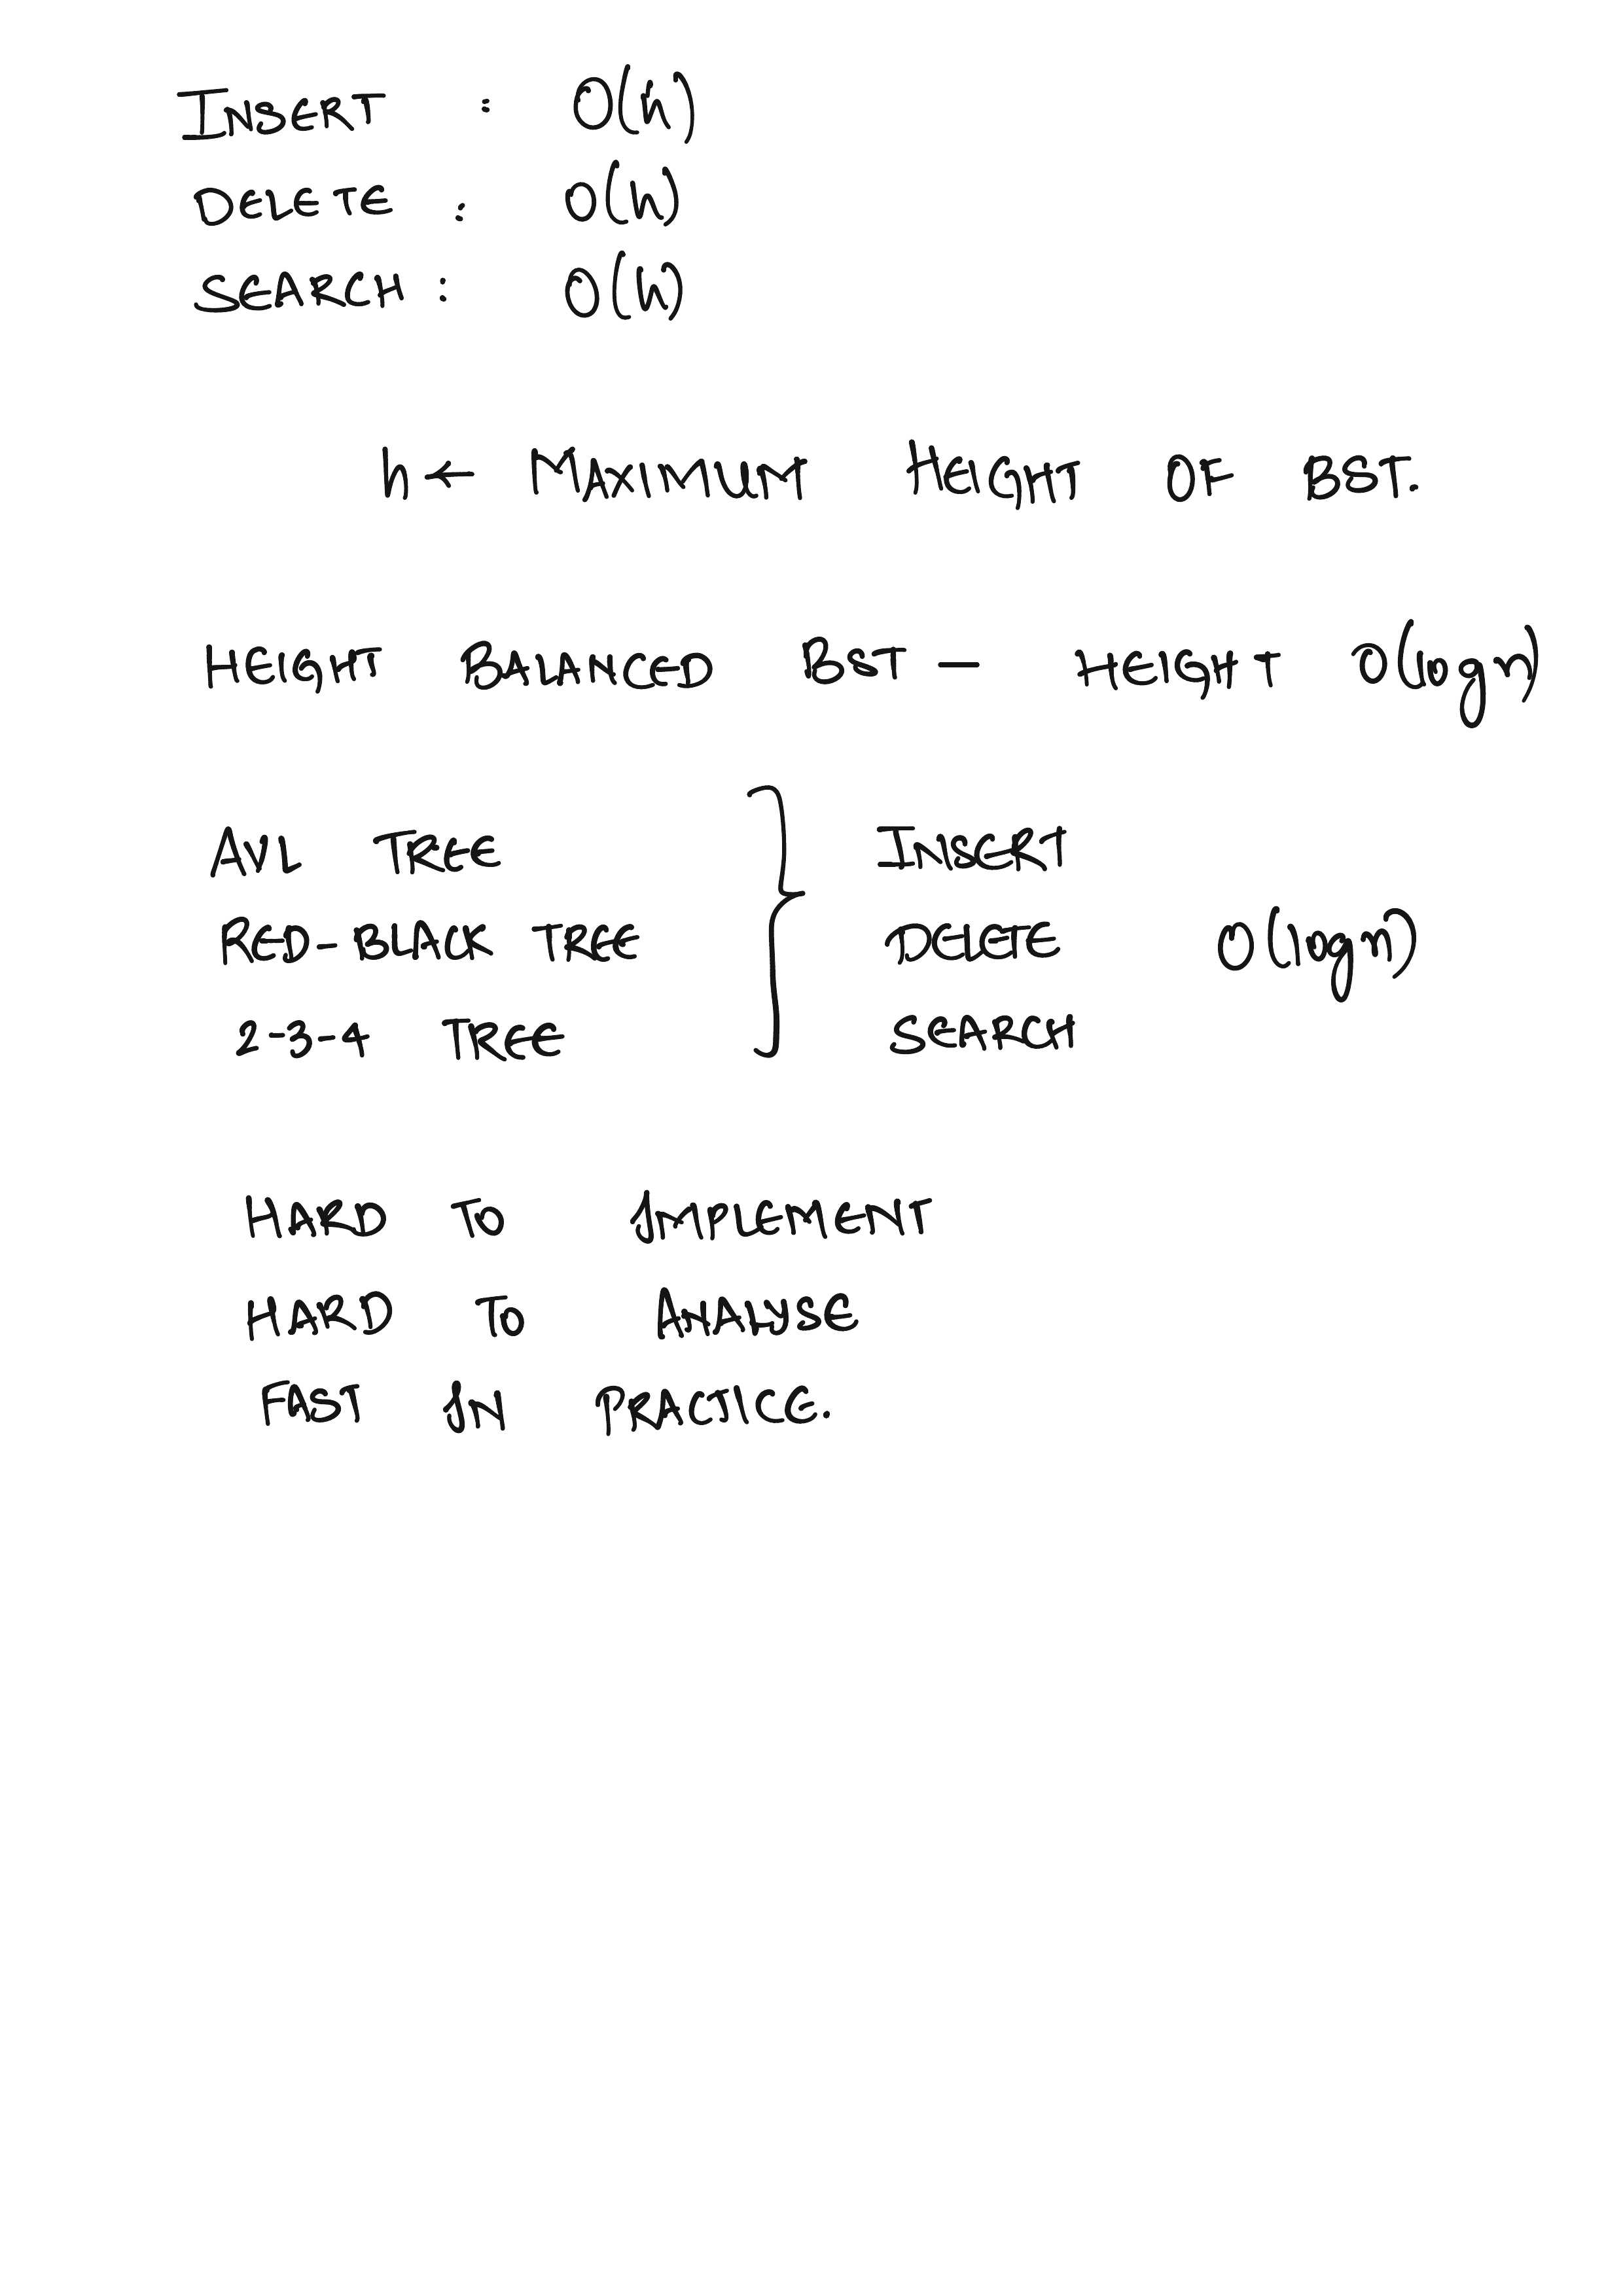 INSERT : O(h)
DELETE : O(h)
SEARCH : O(h)
h ← MAXIMUM HEIGHT OF BST.
HEIGHT BALANCED BST — HEIGHT O(log n)
AVL TREE } INSERT
RED-BLACK TREE DELETE O(log n)
2-3-4 TREE SEARCH
HARD TO IMPLEMENT
HARD TO ANALYSE
FAST IN PRACTICE.